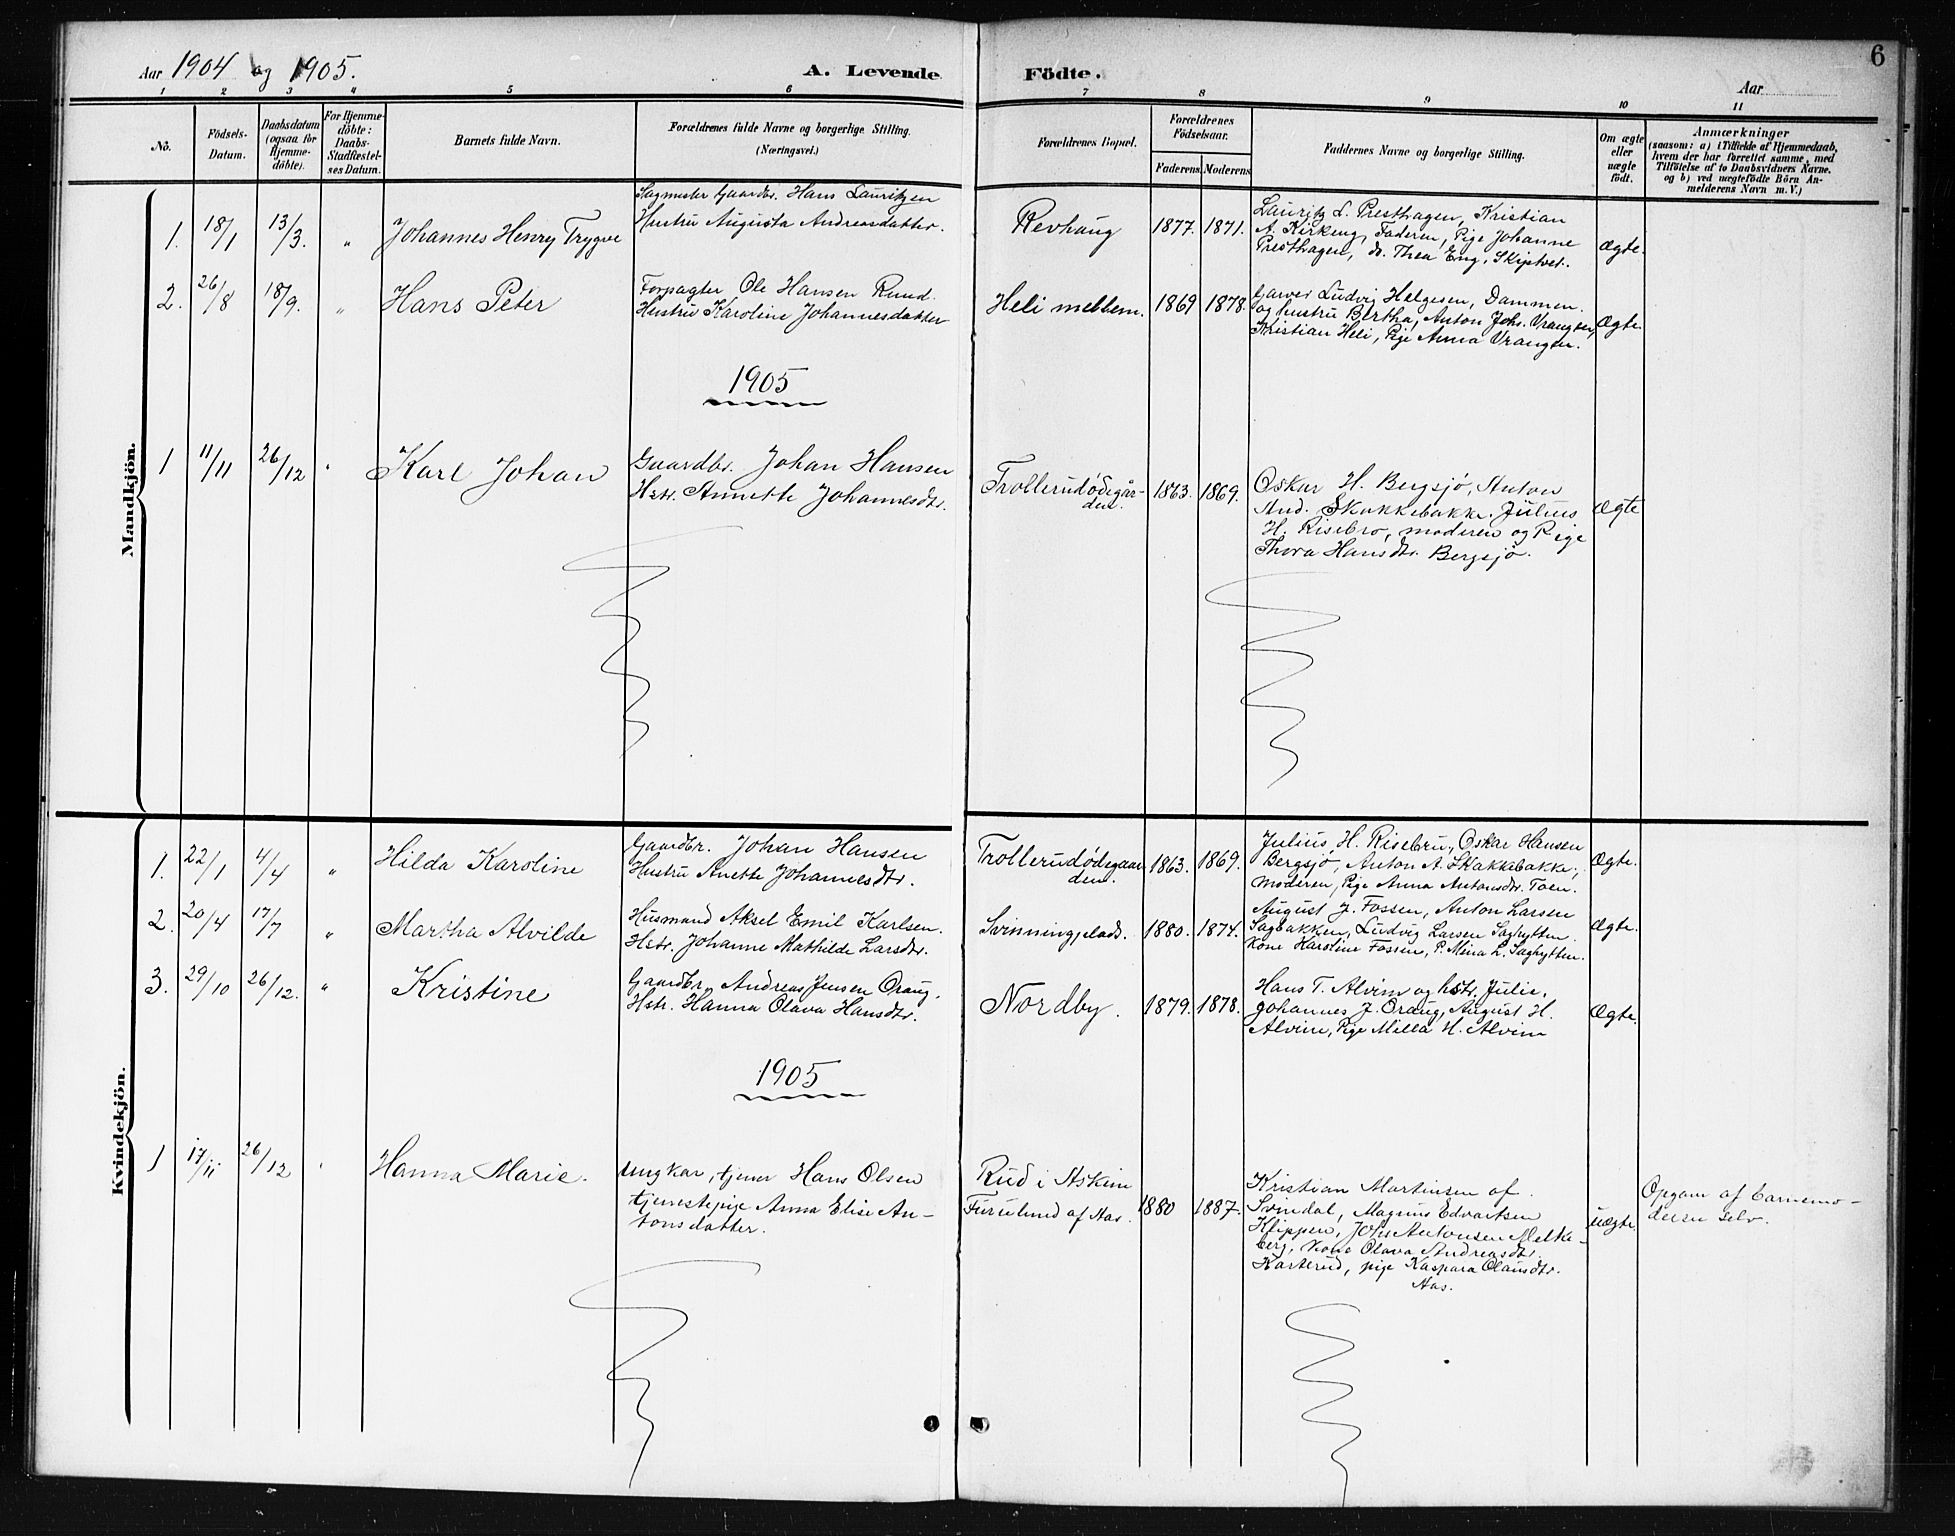 6
Aar 1904 og 1905.
A. Levende Födte.
Aar
1 2 3 4 5 6 7 8 9 10 11
No.
Födsels-
Datum.
Daabsdatum
(ogsaa for
Hjemme-
döbte).
For Hjemme-
döbte:
Daabs-
Stadfæstel-
ses Datum.
Barnets fulde Navn.
Forældrenes fulde Navne og borgerlige Stilling.
(Næringsvei.)
Forældrenes Bopæl.
Forældrenes
Födselsaar.
Faderens Moderens
Faddernes Navne og borgerlige Stilling.
Om ægte
eller
uægte
födt.
Anmærkninger
(saasom: a) i Tilfælde af Hjemmedaab,
hvem der har forrettet samme, med
Tilföielse af to Daabsvidners Navne.
og b) ved uægtefödte Börn An-
melderens Navn m. V.)
Mandkjön.
1. 18/1 13/3. " Johannes Henry Trygve
Sagmester Gaardbr. Hans Lauritzen
Hustru Augusta Andreasdatter.
Revhaug 1877. 1871.
Lauritz L. Presthagen, Kristian
A. Kirkeng, Faderen, Pige Johanne
Presthagen, do. Thea Eng, Skiptvet.
Ægte.
2. 26/8 18/9. " Hans Peter
Forpagter Ole Hansen Rund.
Hustru Karoline Johannesdatter
Heli mellem. 1869 1878.
Garver Ludvig Helgesen, Dammen.
og hustru Bertha, Anton Johs. Vrangsen,
Kristian Heli, Pige Anna Vrangsen.
Ægte.
1905
1 11/11 26/12 " Karl Johan
Gaardbr. Johan Hansen
Hstr. Annette Johannesdtr.
Trollerudødegår-
den. 1863. 1869.
Oskar H. Bergsjö, Anton
And. Skakkebakke. Julius
H. Risebro, moderen og Pige
Thora Hansdtr. Bergsjö.
Ægte
Kvindekjön.
1. 22/1 4/4 " Hilda Karoline
Gaardbr. Johan Hansen
Hustru Anette Johannesdtr.
Trollerudødegaar
den. 1863. 1869.
Julius H. Risebru, Oskar Hansen
Bergsjø, Anton A. Skakkebakke,
moderen, Pige Anna Antonsdtr. Toen.
Ægte.
2. 20/4 17/7 " Martha Alvilde
Husmand Aksel Emil Karlsen.
Hstr. Johanne Mathilde Larsdtr.
Svinningplads. 1880. 1874.
August J. Fossen, Anton Larsen
Sagbakken, Ludvig Larsen Saghytten.
Kone Karoline Fossen, P. Mina L. Saghytten.
Ægte.
3. 29/10 26/12. " Kristine
Gaardbr. Andreas Jensen Oraug.
Hstr. Hanna Olava Hansdtr.
Nordby. 1879. 1878.
Hans T. Alvim og hstr. Julie.
Johannes J. Oraug, August H.
Alvim, Pige Milla H. Alvim
Ægte.
1905
1 17/11 26/12 " Hanna Marie.
Ungkar, tjener Hans Olsen
tjenestepige Anna Elise An-
tonsdatter.
Rud i Askim
Furulund af Aas. 1880 1887.
Kristian Martinsen af
Svindal, Magnus Edvartsen
Klippen, Johs Antonsen Melke-
berg, Kone Olava Andreasdtr.
Karterud, pige Kaspara Olausdtr.
Aas.
uægte.
Opgam af barnemo-
deren selv.